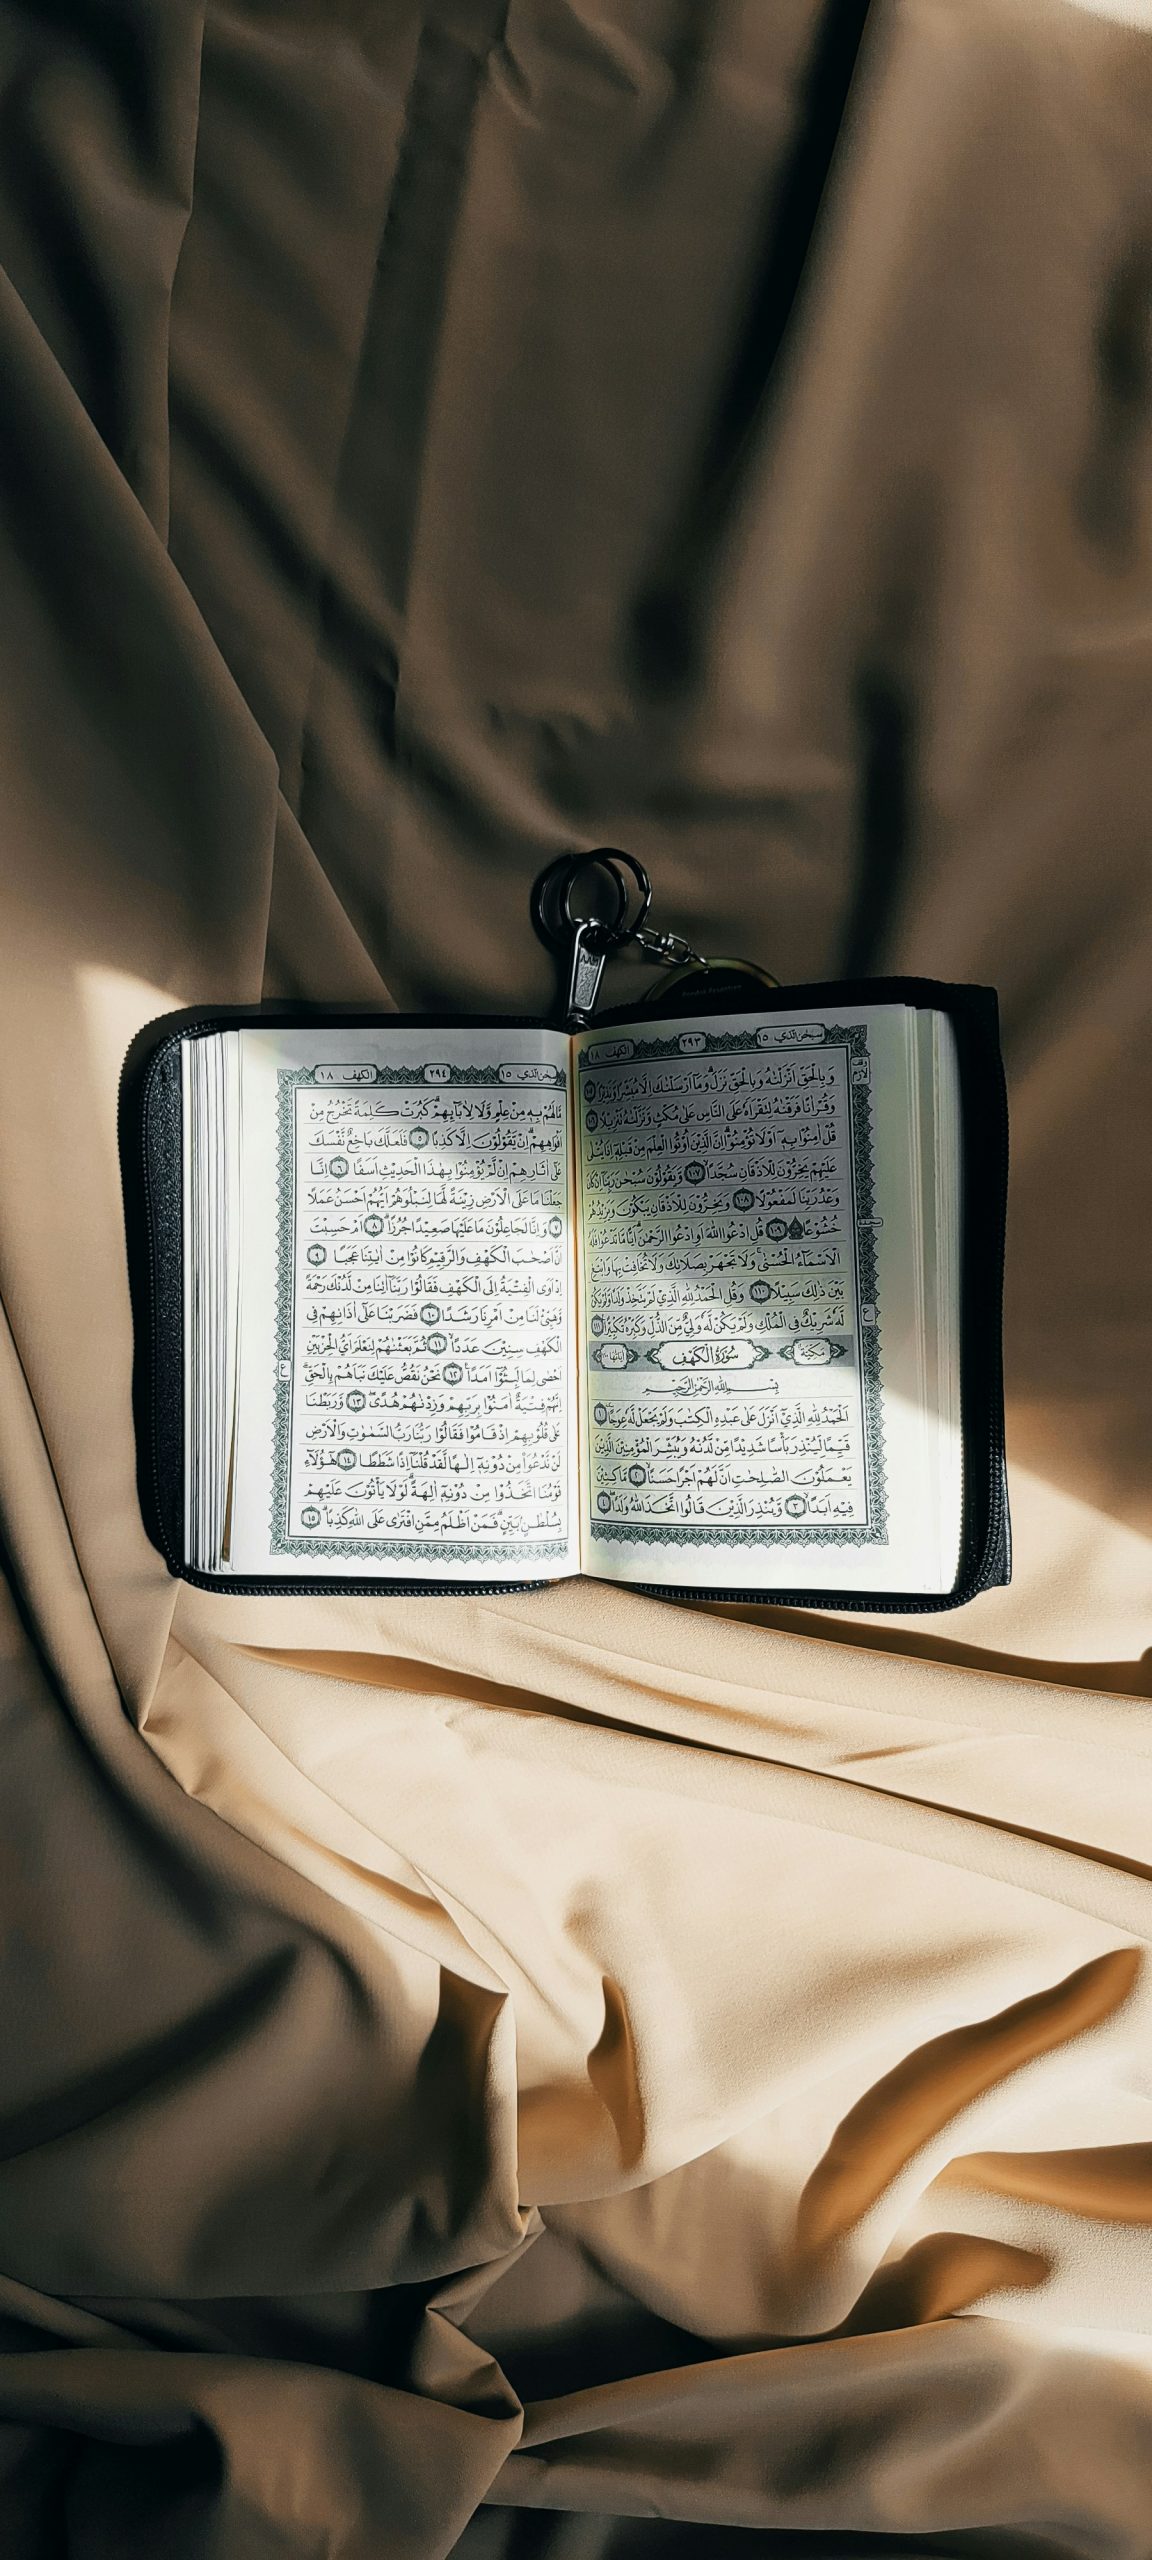 الكهف ١٨
٢٩٣
سبحن الذي ١٥
وقف لازم
وَبِالْحَقِّ اَنْزَلْنٰهُ وَبِالْحَقِّ نَزَلَۗ وَمَآ اَرْسَلْنٰكَ اِلَّا مُبَشِّرًا وَّنَذِيْرًاۘ ١٠٥
وَقُرْاٰنًا فَرَقْنٰهُ لِتَقْرَاَهٗ عَلَى النَّاسِ عَلٰى مُكْثٍ وَّنَزَّلْنٰهُ تَنْزِيْلًا ١٠٦
قُلْ اٰمِنُوْا بِهٖٓ اَوْ لَا تُؤْمِنُوْاۗ اِنَّ الَّذِيْنَ اُوْتُوا الْعِلْمَ مِنْ قَبْلِهٖٓ اِذَا يُتْلٰى
عَلَيْهِمْ يَخِرُّوْنَ لِلْاَذْقَانِ سُجَّدًاۙ ١٠٧ وَّيَقُوْلُوْنَ سُبْحٰنَ رَبِّنَآ اِنْ كَانَ
وَعْدُ رَبِّنَا لَمَفْعُوْلًا ١٠٨ وَيَخِرُّوْنَ لِلْاَذْقَانِ يَبْكُوْنَ وَيَزِيْدُهُمْ
خُشُوْعًا ۩ ١٠٩ قُلِ ادْعُوا اللّٰهَ اَوِ ادْعُوا الرَّحْمٰنَۗ اَيًّا مَّا تَدْعُوْا فَلَهُ
سجدة
الْاَسْمَاۤءُ الْحُسْنٰىۚ وَلَا تَجْهَرْ بِصَلَاتِكَ وَلَا تُخَافِتْ بِهَا وَابْتَغِ
بَيْنَ ذٰلِكَ سَبِيْلًا ١١٠ وَقُلِ الْحَمْدُ لِلّٰهِ الَّذِيْ لَمْ يَتَّخِذْ وَلَدًا وَّلَمْ يَكُنْ
لَّهٗ شَرِيْكٌ فِى الْمُلْكِ وَلَمْ يَكُنْ لَّهٗ وَلِيٌّ مِّنَ الذُّلِّ وَكَبِّرْهُ تَكْبِيْرًا ١١١
ع
مكية
سورة الكهف
بِسْمِ اللّٰهِ الرَّحْمٰنِ الرَّحِيْمِ
اَلْحَمْدُ لِلّٰهِ الَّذِيْٓ اَنْزَلَ عَلٰى عَبْدِهِ الْكِتٰبَ وَلَمْ يَجْعَلْ لَّهٗ عِوَجًاۜ ١
قَيِّمًا لِّيُنْذِرَ بَأْسًا شَدِيْدًا مِّنْ لَّدُنْهُ وَيُبَشِّرَ الْمُؤْمِنِيْنَ الَّذِيْنَ
يَعْمَلُوْنَ الصّٰلِحٰتِ اَنَّ لَهُمْ اَجْرًا حَسَنًاۙ ٢ مَّاكِثِيْنَ
فِيْهِ اَبَدًاۙ ٣ وَّيُنْذِرَ الَّذِيْنَ قَالُوا اتَّخَذَ اللّٰهُ وَلَدًا ٤
الكهف ١٨
٢٩٤
سبحن الذي ١٥
مَا لَهُمْ بِهٖ مِنْ عِلْمٍ وَّلَا لِاٰبَاۤىِٕهِمْۗ كَبُرَتْ كَلِمَةً تَخْرُجُ مِنْ
اَفْوَاهِهِمْۗ اِنْ يَّقُوْلُوْنَ اِلَّا كَذِبًا ٥ فَلَعَلَّكَ بَاخِعٌ نَّفْسَكَ
عَلٰٓى اٰثَارِهِمْ اِنْ لَّمْ يُؤْمِنُوْا بِهٰذَا الْحَدِيْثِ اَسَفًا ٦ اِنَّا
جَعَلْنَا مَا عَلَى الْاَرْضِ زِيْنَةً لَّهَا لِنَبْلُوَهُمْ اَيُّهُمْ اَحْسَنُ عَمَلًا
٧ وَاِنَّا لَجَاعِلُوْنَ مَا عَلَيْهَا صَعِيْدًا جُرُزًاۗ ٨ اَمْ حَسِبْتَ
اَنَّ اَصْحٰبَ الْكَهْفِ وَالرَّقِيْمِ كَانُوْا مِنْ اٰيٰتِنَا عَجَبًا ٩
اِذْ اَوَى الْفِتْيَةُ اِلَى الْكَهْفِ فَقَالُوْا رَبَّنَآ اٰتِنَا مِنْ لَّدُنْكَ رَحْمَةً
وَّهَيِّئْ لَنَا مِنْ اَمْرِنَا رَشَدًا ١٠ فَضَرَبْنَا عَلٰٓى اٰذَانِهِمْ فِى
الْكَهْفِ سِنِيْنَ عَدَدًاۙ ١١ ثُمَّ بَعَثْنٰهُمْ لِنَعْلَمَ اَيُّ الْحِزْبَيْنِ
اَحْصٰى لِمَا لَبِثُوْٓا اَمَدًا ١٢ نَحْنُ نَقُصُّ عَلَيْكَ نَبَاَهُمْ بِالْحَقِّۗ
ع
اِنَّهُمْ فِتْيَةٌ اٰمَنُوْا بِرَبِّهِمْ وَزِدْنٰهُمْ هُدًىۖ ١٣ وَّرَبَطْنَا
عَلٰى قُلُوْبِهِمْ اِذْ قَامُوْا فَقَالُوْا رَبُّنَا رَبُّ السَّمٰوٰتِ وَالْاَرْضِ
لَنْ نَّدْعُوَا۟ مِنْ دُوْنِهٖٓ اِلٰهًا لَّقَدْ قُلْنَآ اِذًا شَطَطًا ١٤ هٰٓؤُلَاۤءِ
قَوْمُنَا اتَّخَذُوْا مِنْ دُوْنِهٖٓ اٰلِهَةًۗ لَوْلَا يَأْتُوْنَ عَلَيْهِمْ
بِسُلْطٰنٍۢ بَيِّنٍۗ فَمَنْ اَظْلَمُ مِمَّنِ افْتَرٰى عَلَى اللّٰهِ كَذِبًاۗ ١٥